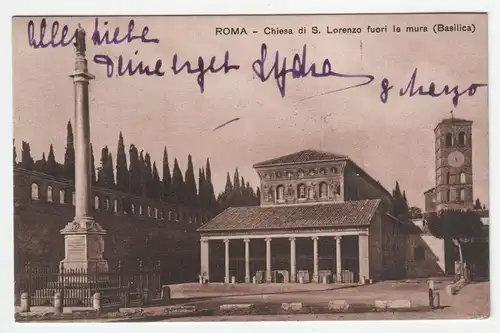 ROMA - Chiesa di S. Lorenzo fuori le mura (Basilica)
alle Liebe
Deine vergt Lydia
8 März